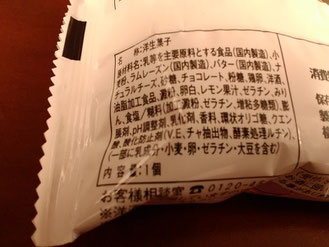 名 称:洋生菓子
原材料名:乳等を主要原料とする食品(国内製造)、小
麦粉、ラムレーズン(国内製造)、バター(国内製造)、ナ
チュラルチーズ、砂糖、チョコレート、粉糖、鶏卵、洋酒、
油脂加工食品、澱粉、卵白、レモン果汁、ゼラチン、みり
ん、食塩/糊料(加工澱粉、ゼラチン、増粘多糖類)、膨
脹剤、pH調整剤、乳化剤、香料、環状オリゴ糖、クエン
酸、酸化防止剤(V.E、チャ抽出物、酵素処理ルチン)、
(一部に乳成分・小麦・卵・ゼラチン・大豆を含む)
内容量:1個
お客様相談室
0120-4